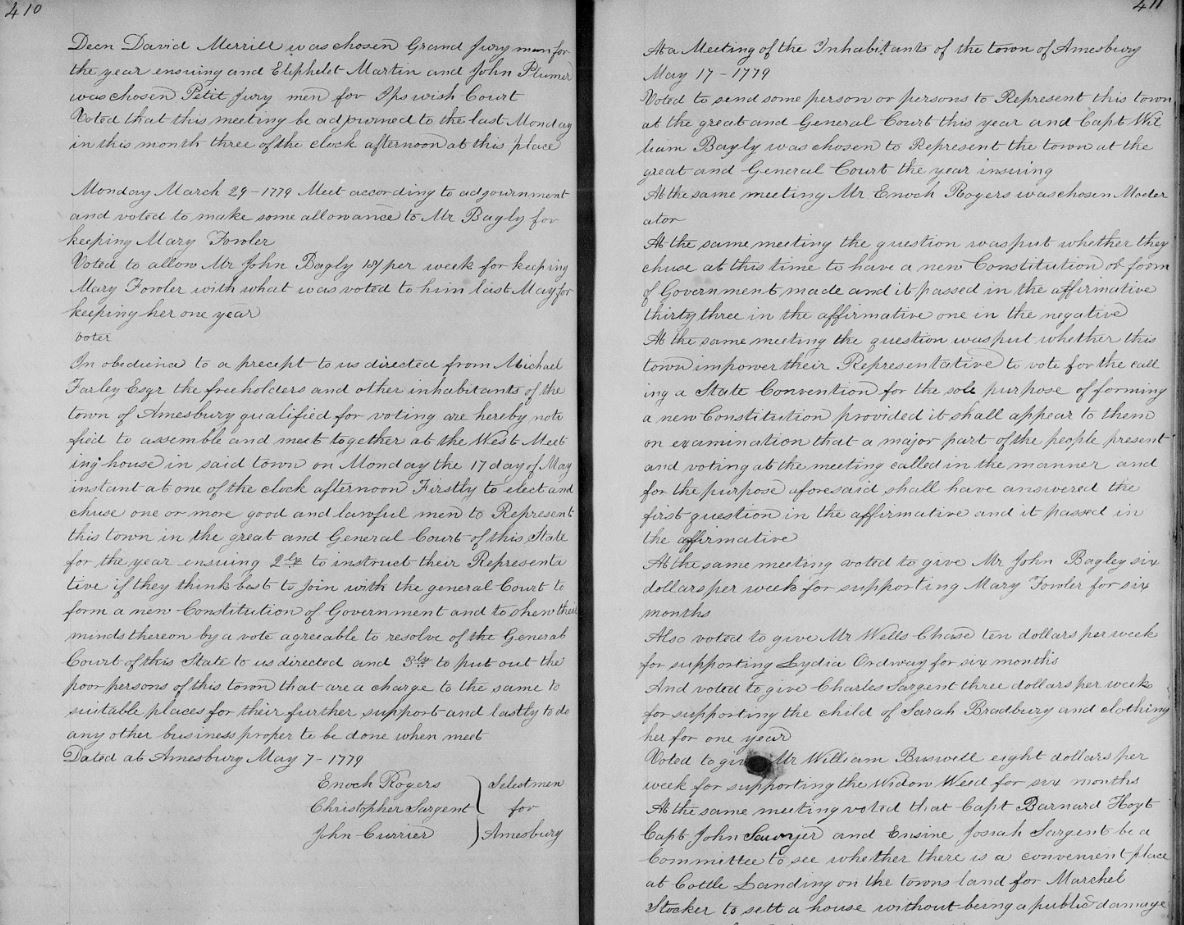 410
Decn David Merrill was chosen Grand Jury man for
the year ensuing and Eliphelet Martin and John Plumer
was chosen Petit Jury men for Ipswish Court
Voted that this meeting be adjourned to the last Monday
in this month three of the clock afternoon at this place
Monday March 29-1779 Meet according to adgournment
and voted to make some allowance to Mr Bagly for
keeping Mary Fowler
Voted to allow Mr John Bagly per week for keeping
Mary Fowler with what was voted to him last May for
keeping her one year
voter
In obediena to a precept to us directed from Michael
Farley Esqr the freeholders and other inhabitants of the
town of Amesbury qualified for voting are hereby note
fied to assemble and meet together at the West Meet
ing house in said town on Monday the 17 day of May
instant at one of the clock afternoon Firstly to elect and
chuse one or more good and lawful men to Represent
this town in the great and General Court of this State
for the year ensuing 2ly to instruct their Representa
tive if they think best to join with the general Court to
form a new Constitution of Government and to shew their
minds thereon by a vote agreable to resolve of the General
Court of this State to us directed and 3ly to put out the
poor persons of this town that are a charge to the same to
suitable places for their further support and lastly to do
any other business proper to be done when meet
Dated at Amesbury May 7-1779
Enoch Rogers
Christopher Sargent
John Currier
Selestmen
for
Amesbury
411
At a Meeting of the Inhabitants of the town of Amesbury
May 17-1779
Voted to send some person or persons to Represent this town
at the great and General Court this year and Capt Wil
liam Bagly was chosen to Represent the town at the
great and General Court the year insuing
At the same meeting Mr Enoch Rogers was chosen Moder
ator
At the same meeting the question was put whether they
chuse at this time to have a new Constitution or form
of Government made and it passed in the affirmative
thirty three in the affirmative one in the negative
At the same meeting the question was put whether this
town impower their Representative to vote for the call
ing a State Convention for the sole purpose of forming
a new Constitution provided it shall appear to them
on examination that a major part of the people present
and voting at the meeting called in the manner and
for the purpose aforesaid shall have answered the
first question in the affirmative and it passed in
the affirmative
At the same meeting voted to give Mr John Bagley six
dollars per week for supporting Mary Fowler for six
months
Also voted to give Mr Wells Chase ten dollars per week
for supporting Lydia Ordway for six months
And voted to give Charles Sargent three dollars per week
for supporting the child of Sarah Bradbury and clothing
her for one year
Voted to give Mr William Buswell eight dollars per
week for supporting the Widow Weed for six months
At the same meeting voted that Capt Barnard Hoyt
Capt John Sawyer and Ensine Josiah Sargent be a
Committee to see whether there is a convenient place
at Cottle Landing on the towns land for Marchel
Stocker to sett a house without being a public damage